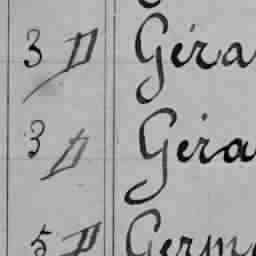 3 D Géra
3 D Gera
5 D Germ